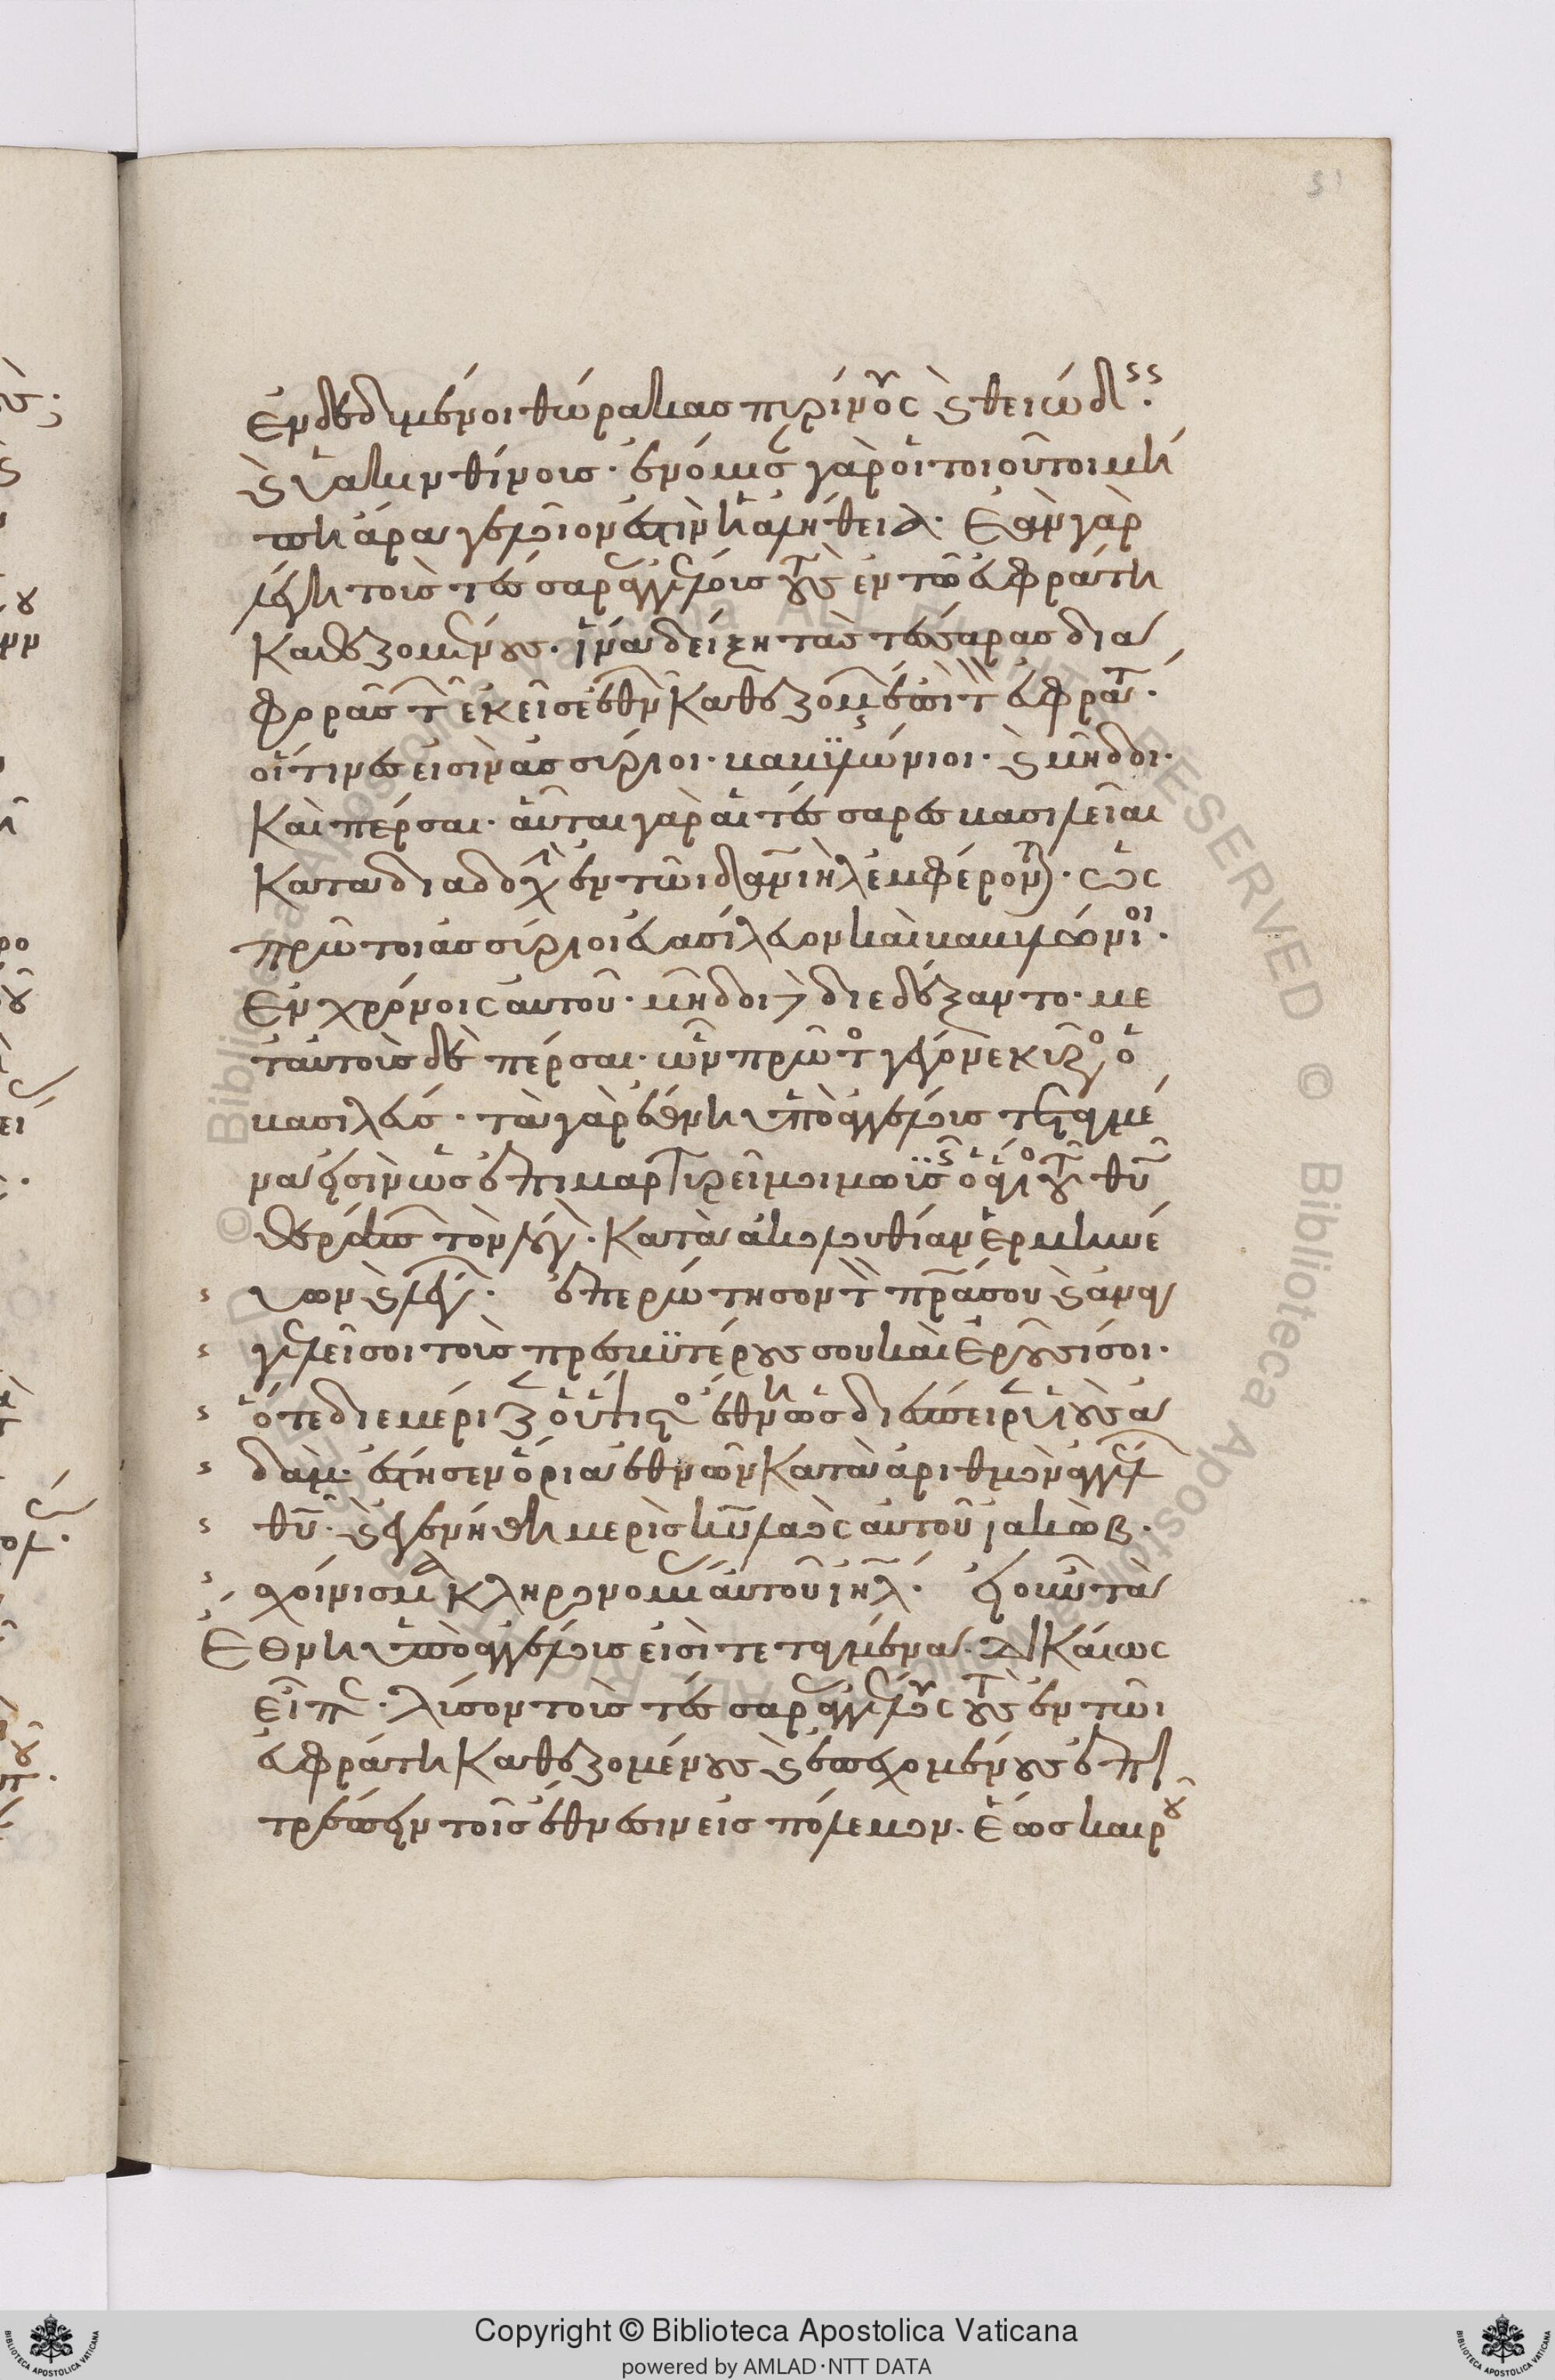 ἐνδεδυμένοι θώρακας πυρίνους καὶ θειώδεις
καὶ ὑακινθίνους. ἐνόμισε γὰρ ὁ τοιοῦτος μή
πῃ ἄρα γελοῖον ἐστὶν ἡ ἀλήθεια. Ἐὰν γὰρ
λέγῃ τοὺς τέσσαρας ἀγγέλους τοὺς ἐν τῷ εὐφράτῃ
καθεζομένους. ἵνα δείξῃ τὰς τέσσαρας δια
φορὰς τῶν ἐκεῖσε ἐθνῶν καθεζομένων ἐπὶ τὸν εὐφράτην.
οἵτινες εἰσὶν ἀσσύριοι. βαβυλώνιοι. καὶ μῆδοι.
καὶ πέρσαι. αὗται γὰρ αἱ τέσσαρες βασιλεῖαι
κατὰ διαδοχὴν ἐν τῶι δανιὴλ ἐμφέρονται. ὡς
πρῶτοι ἀσσύριοι ἐβασίλευον καὶ βαβυλώνιοι.
ἐν χρόνοις αὐτοῦ. μῆδοι δὲ διεδέξαντο. με
τ᾽ αὐτοὺς δὲ πέρσαι. ὧν πρῶτος γέγονε κῦρος ὁ
βασιλεύς. τὰ γὰρ ἔθνη ὑπὸ ἀγγέλους τεταγμέ
να εἰσὶν ὡς ἐπιμαρτυρεῖ μοι μωϋσῆς ὁ ἅγιος τοῦ θῦ
θεράπων τὸν λόγον. κατὰ ἀκολουθίαν ἑρμηνεύ
ων καὶ λέγων. ἐπερώτησον τὸν πρᾶ σου καὶ ἀναγ
γελεῖ σοι τοὺς πρεσβυτέρους σου καὶ ἐροῦσί σοι.
ὅτε διεμέριζεν ὁ ὕψιστος ἔθνη ὡς διέσπειρεν υἱοὺς ἀ
δάμ. ἔστησεν ὅρια ἐθνῶν κατὰ ἀριθμὸν ἀγγέλων
θῦ. καὶ ἐγενήθη μερὶς κῦ λαὸς αὐτοῦ ἰακὼβ.
σχοίνισμα κληρονομίας αὐτοῦ ιηλ. εἰ οὖν τὰ
ἔθνη ὑπὸ ἀγγέλους εἰσὶ τεταγμένα. δικαίως
εἶπεν. λῦσον τοὺς τέσσαρας ἀγγέλους τοὺς ἐν τῶι
εὐφράτῃ καθεζομένους καὶ ἐπεχομένους ἐπι
τρέπειν τοῖς ἔθνεσιν εἰς πόλεμον. ἕως καιροῦ